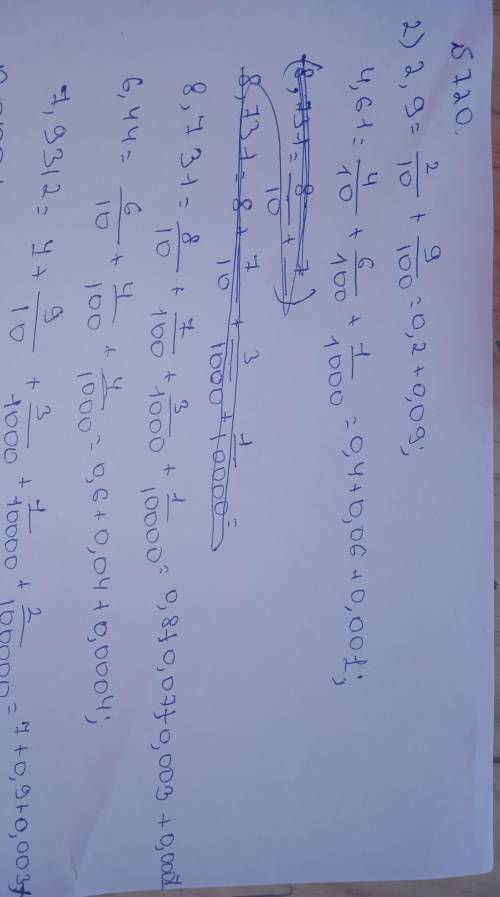 5720.
2) 2,9 = 2/10 + 9/100 = 0,2+0,09;
4,61 = 4/10 + 6/100 + 1/1000 = 0,4+0,06+0,001;
8,731 = 8/10 + 7
8,731 = 8 + 7/10 + 3/1000 + 1/10000 =
8,731 = 8/10 + 7/100 + 3/1000 + 1/10000 = 0,8+0,07+0,003+0,0001
6,44 = 6/10 + 4/100 + 4/1000 = 0,6+0,04+0,0004;
7,9312 = 7 + 9/10 + 3/1000 + 1/10000 + 2/100000 = 7+0,9+0,003+